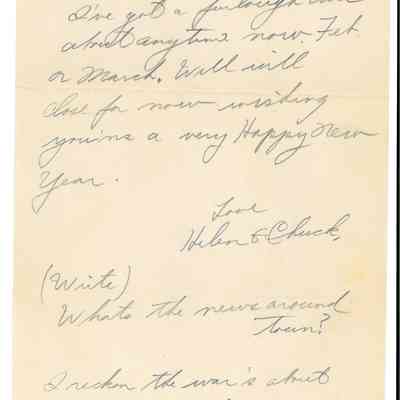 I've got a furlough due
about anytime now. Feb.
or March. Well will
close for now wishing
you'ns a very Happy New
Year.
Love
Helen & Chuck,
(Write)
Whats the news around
Town?
I reckon the war's about